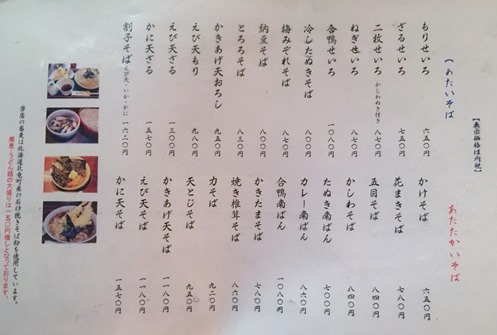 【表示価格は内税】
【あたいそば
もりせいろ 六五〇円
ざるせいろ 七五〇円
二枚せいろ
ねぎせいろ 八七〇円
合鴨せいろ
冷したぬきそば 八〇〇円
梅みぞれそば 八〇〇円
納豆そば 八〇〇円
とろろそば 八三〇円
かきあげ天おろし 九八〇円
えび天もり
えび天ざる 一三〇〇円
かに天ざる 一五七〇円
割子そば えび天・いか・かに 一六二〇円
あたたかいそば
かけそば 六五〇円
花まきそば 七八〇円
五目そば 八四〇円
かしわそば 八四〇円
たぬき南ばん 七〇〇円
カレー南ばん 八六〇円
合鴨南ばん 一〇八〇円
かきたまそば 七八〇円
焼き椎茸そば 八六〇円
力そば 九二〇円
天とじそば 九五〇円
かきあげ天そば 一一八〇円
えび天そば 一一八〇円
かに天そば 一五七〇円
当店の蕎麦は北海道北竜町産の石臼挽きそば粉を使用しています。
蕎麦・うどん類の大盛りは一五〇円増しとなっております。